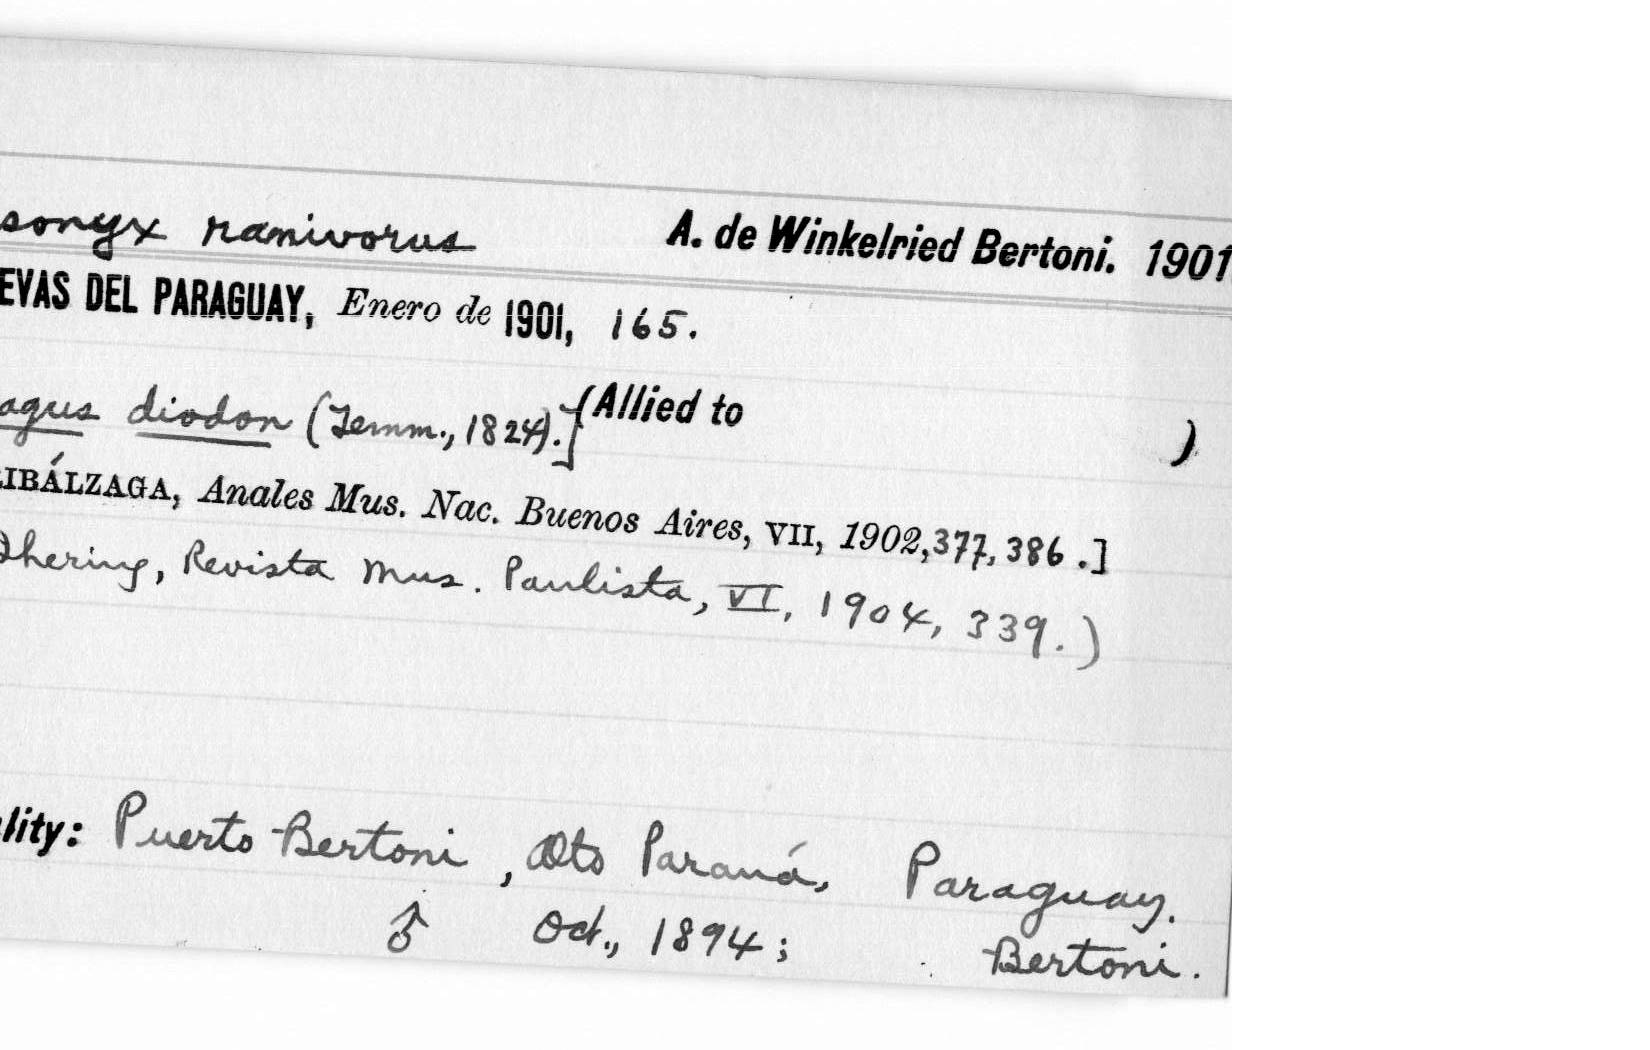 sonyx ranivorus A. de Winkelried Bertoni. 1901
EVAS DEL PARAGUAY, Enero de 1901, 165.
agus diodon (Temm., 1824).] (Allied to )
IBÁLZAGA, Anales Mus. Nac. Buenos Aires, VII, 1902, 377, 386.]
Ihering, Revista Mus. Paulista, VI, 1904, 339.)
lity: Puerto Bertoni, Alto Paraná, Paraguay.
♂ Oct., 1894; Bertoni.